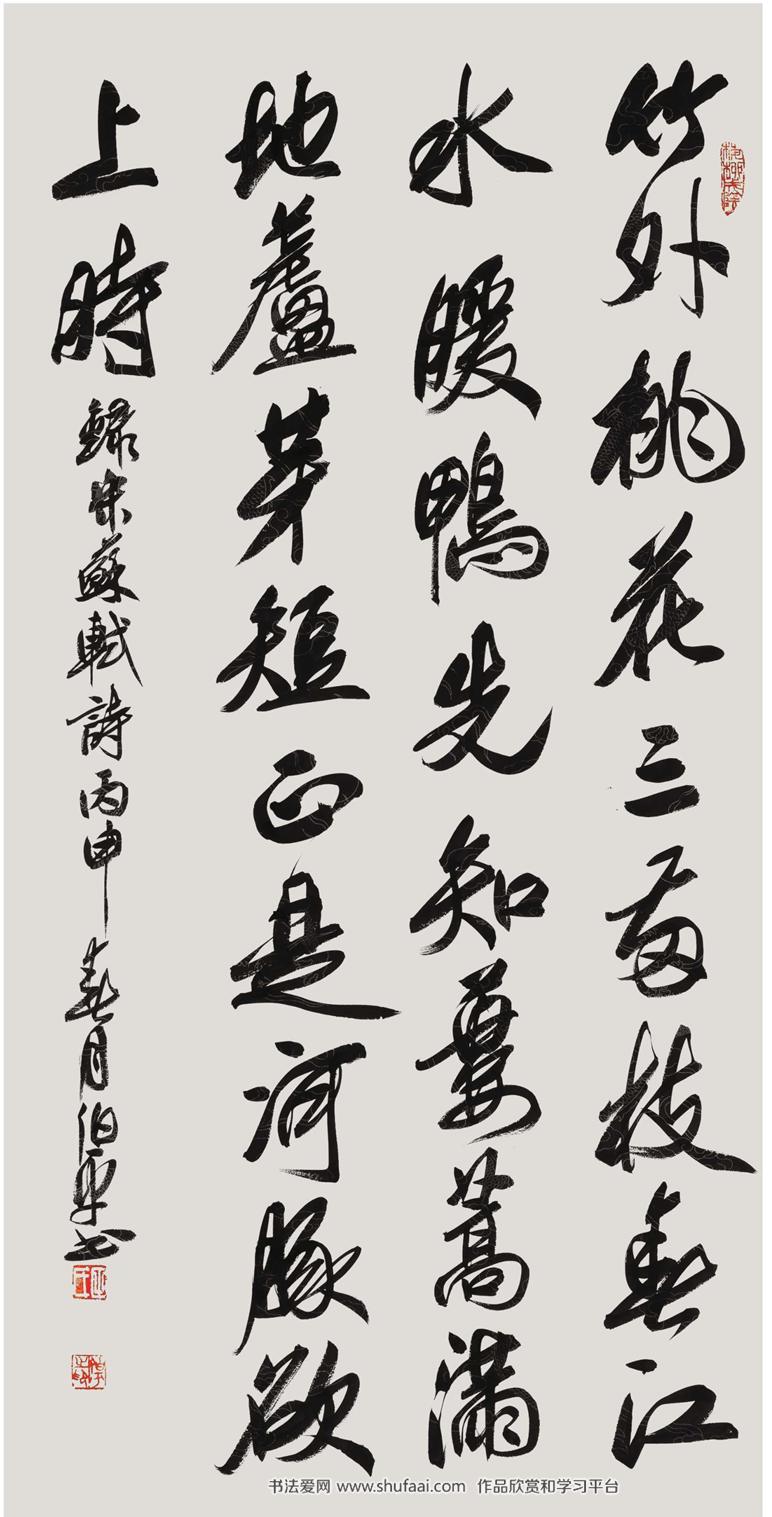 竹外桃花三兩枝春江
水暖鴨先知蔞蒿滿
地蘆芽短正是河豚欲
上時
錄宋蘇軾詩丙申春月伯平書
书法爱网 www.shufaai.com 作品欣赏和学习平台